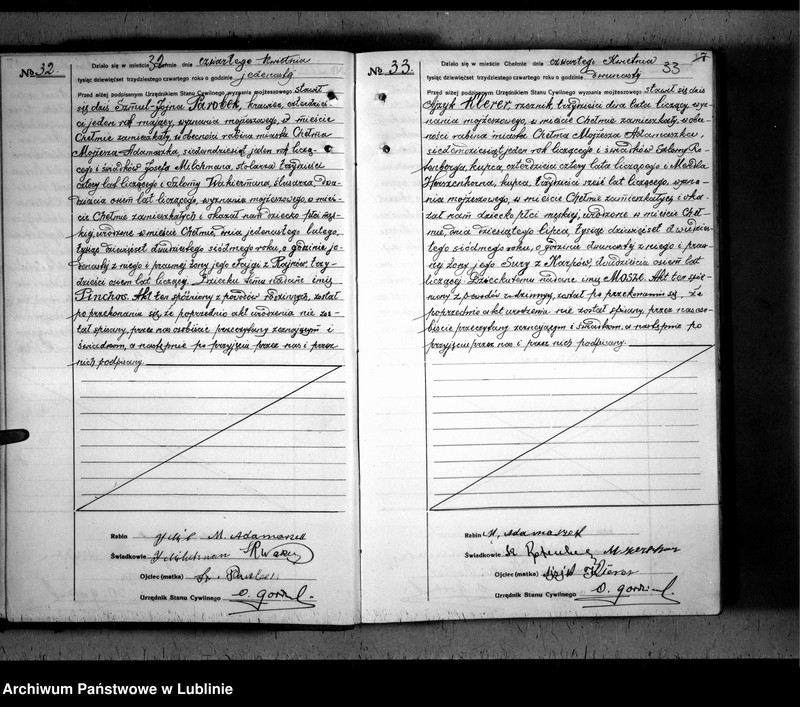 № 32.
32
Działo się w mieście Chełmie dnia czwartego Kwietnia
tysiąc dziewięćset trzydziestego czwartego roku o godzinie jedenastej
Przed niżej podpisanym Urzędnikiem Stanu Cywilnego wyznania mojżeszowego stawił
się dziś Szmul-Jojna Parobek, krawiec, czterdzieści
i jeden rok mający, wyznania mojżeszowego, w mieście
Chełmie zamieszkały, w obecności rabina miasta Chełma
Mojżesza Adamaszka, siedemdziesiąt jeden rok liczą-
cego i świadków Josefa Milchmana, stolarza trzydzieści
cztery lat liczącego i Szlomy Wakiermana, ślusarza dwa-
dzieścia osiem lat liczącego, wyznania mojżeszowego, w mieś-
cie Chełmie zamieszkałych i okazał nam dziecko płci męs-
kiej, urodzone w mieście Chełmie, dnia jedenastego lutego,
tysiąc dziewięćset dwudziestego siódmego roku, o godzinie je-
denastej z niego i prawnej żony jego z Rajnów, trzy-
dzieści osiem lat liczącej. Dziecku temu nadane imię
Pinchos. Akt ten spóźniony z powodów rodzinnych, został
po przekonaniu się, że poprzednio akt urodzenia nie zos-
tał spisany, przez nas osobiście przeczytany zeznającym i
świadkom, a następnie po przyjęciu przez nas i przez
nich podpisany.
Rabin M. Adamaszek
Świadkowie J Milchman
Ojciec (matka) Sz. Parobek
Urzędnik Stanu Cywilnego
№ 33.
33
Działo się w mieście Chełmie dnia czwartego Kwietnia
tysiąc dziewięćset trzydziestego czwartego roku o godzinie dwunastej
Przed niżej podpisanym Urzędnikiem Stanu Cywilnego wyznania mojżeszowego stawił się dziś
Ajzyk Klerer, rzeźnik, trzydzieści dwa lata liczący, wyz-
nania mojżeszowego, w mieście Chełmie zamieszkały, w obec-
ności rabina miasta Chełma Mojżesza Adamaszka,
siedemdziesiąt jeden rok liczącego i świadków Szlomy Ro-
tenberga, kupca, czterdzieści cztery lata liczącego i Medla
Horszenhorna, kupca, trzydzieści sześć lat liczącego, wyzna-
nia mojżeszowego, w mieście Chełmie zamieszkałych i oka-
zał nam dziecko płci męskiej, urodzone w mieście Cheł-
mie, dnia dziesiątego lipca, tysiąc dziewięćset dwudzies-
tego siódmego roku, o godzinie dwunastej z niego i praw-
nej żony jego Sury z Karpów, dwadzieścia osiem lat
liczącej. Dziecku temu nadane imię Mosze. Akt ten spóź-
niony z powodów rodzinnych, został po przekonaniu się, że
poprzednio akt urodzenia nie został spisany, przez nas oso-
biście przeczytany zeznającym i świadkom, a następnie po
przyjęciu przez nas i przez nich podpisany.
Rabin M. Adamaszek
Świadkowie
Ojciec (matka) Ajzyk Klerer
Urzędnik Stanu Cywilnego
Archiwum Państwowe w Lublinie